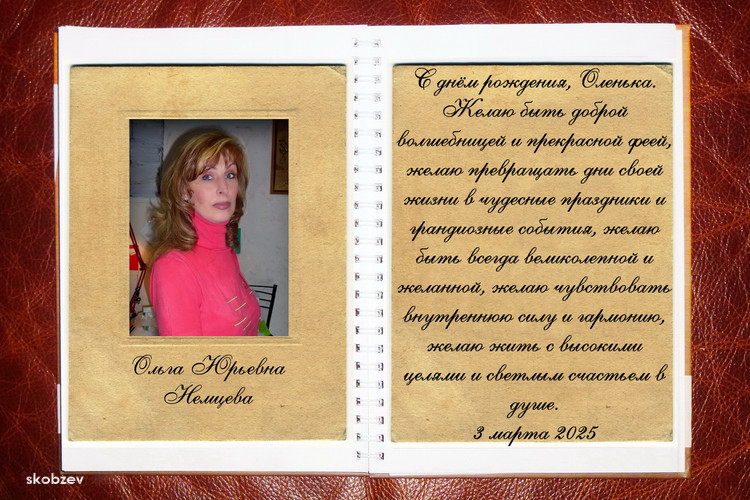 Ольга Юрьевна
Немцева
С днём рождения, Оленька.
Желаю быть доброй
волшебницей и прекрасной феей,
желаю превращать дни своей
жизни в чудесные праздники и
грандиозные события, желаю
быть всегда великолепной и
желанной, желаю чувствовать
внутреннюю силу и гармонию,
желаю жить с высокими
целями и светлым счастьем в
душе.
3 марта 2025
skobzev